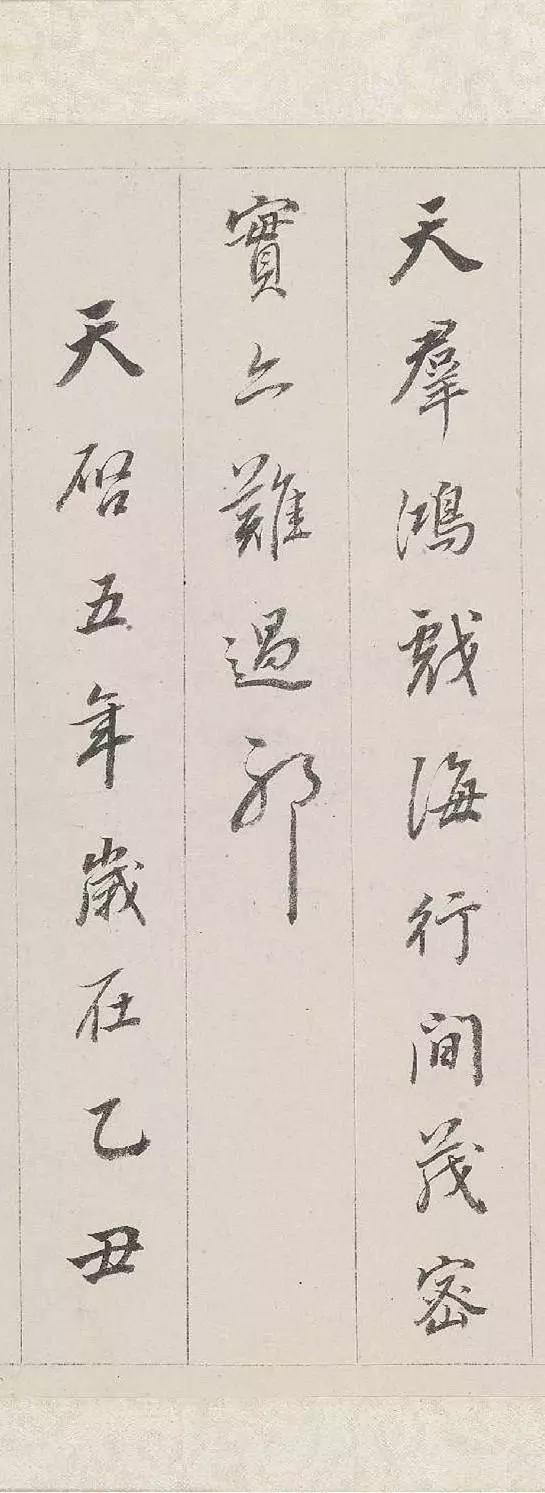 天羣鴻戲海行間茂密
實亦難過耶
天啓五年歲在乙丑